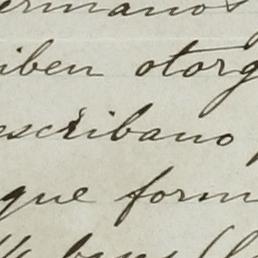 ermanos
iben otorg
escribano
que form